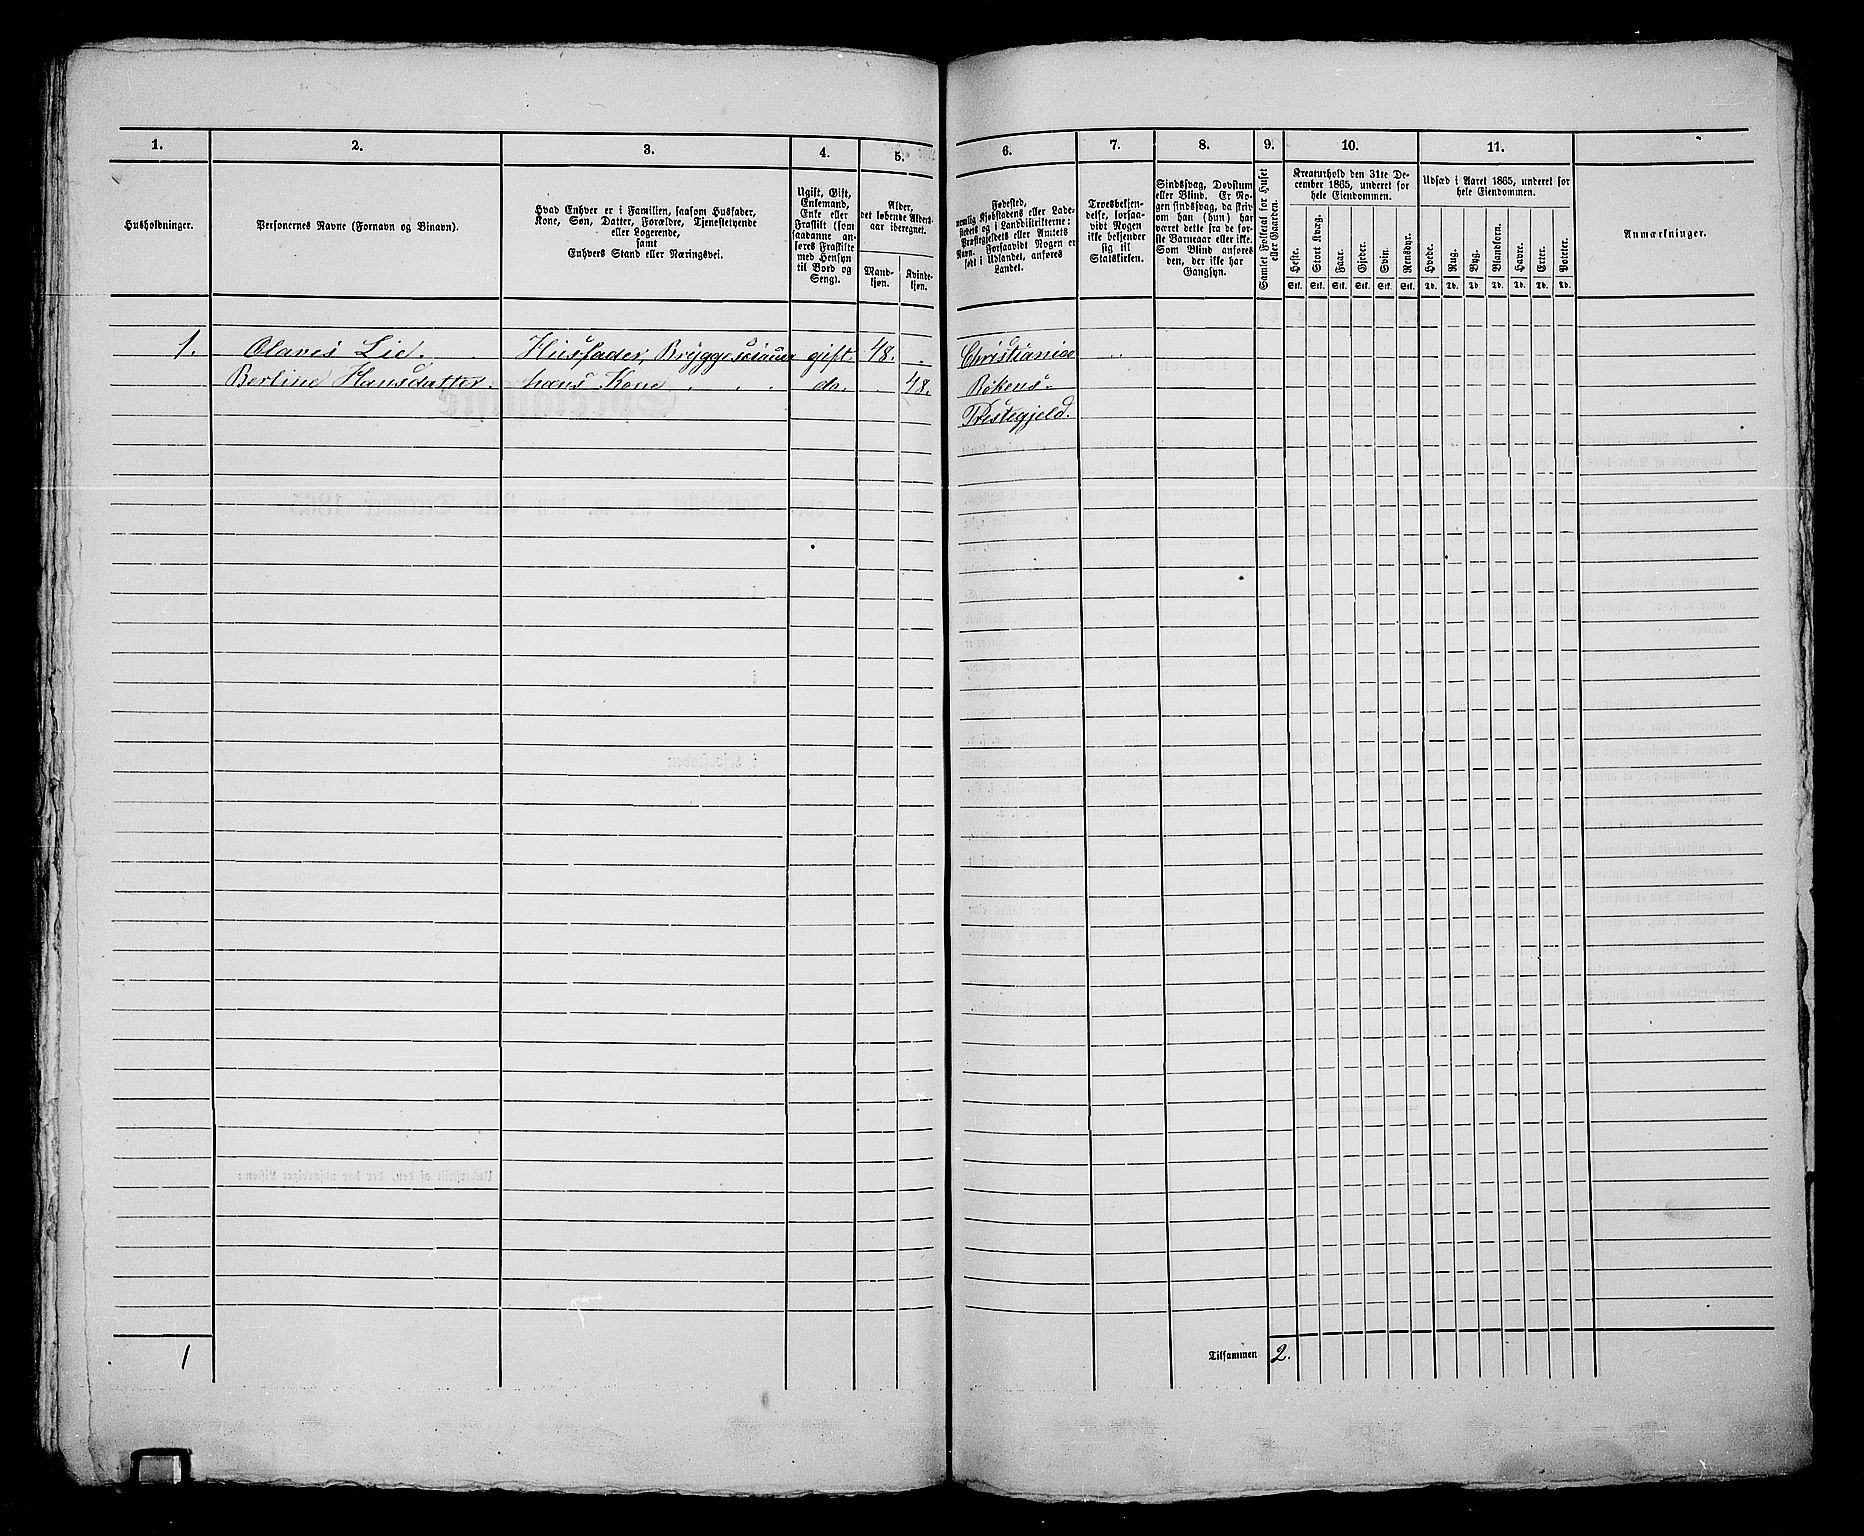 1. 2. 3. 4. 5. 6. 7. 8. 9. 10. 11.
Husholdninger.
Personernes Navne (Fornavn og Binavn).
Hvad Enhver er i Familien, saasom Husfader,
Kone, Søn, Datter, Forældre, Tjenestetyende
eller Logerende,
samt
Enhvers Stand eller Næringsvei.
Ugift, Gift,
Enkemand,
Enke eller
Fraskilt (som
saadanne an-
føres Fraskilte
med Hensyn
til Bord og
Seng).
Alder,
det løbende Alders-
aar iberegnet.
Mand-
kjøn.
Kvinde-
kjøn.
Fødested,
nemlig Kjøbstadens eller Lade-
stedets og i Landdistrikterne:
Præstegjeldets eller Amtets
Navn. Forsaavidt Nogen er
født i Udlandet, anføres
Landet.
Troesbekjen-
delse, forsaa-
vidt Nogen
ikke bekjender
sig til
Statskirken.
Sindssvag, Døvstum
eller Blind. Er No-
gen sindssvag, da skriv
om han (hun) har
været dette fra de før-
ste Barneaar eller ikke.
Som Blind anføres
den, der ikke har
Gangsyn.
Samlet Folketal for Huset
eller Gaarden.
Kreaturhold den 31te De-
cember 1865, underet for
hele Eiendommen.
Heste.
Stort Kvæg.
Faar.
Gjeder.
Svin.
Rensdyr.
Stk. Stk. Stk. Stk. Stk. Stk.
Udsæd i Aaret 1865, underet for
hele Eiendommen.
Hvede.
Rug.
Byg.
Blandkorn.
Havre.
Erter.
Poteter.
Td. Td. Td Td. Td. Td. Td.
Anmærkninger.
1. Olaves Lie. Husfader, gift 48. Christiania
Berline Hansdatter. hans Kone do. 48. Røkens
Prestegjeld.
1 Tilsammen 2.